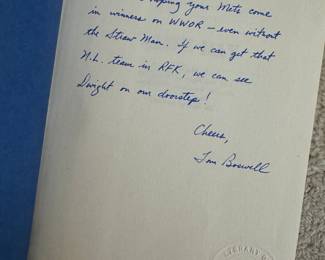 hoping your Mets come
in winners on WWOR – even without
the Straw Man. If we can get that
N.L. team in RFK, we can see
Dwight on our doorstep!
Cheers,
Tom Boswell
LIBRARY